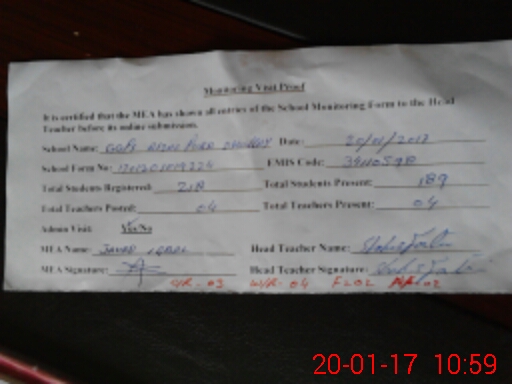 Monitoring Visit Proof
It is certified that the MEA has shown all entries of the School Monitoring Form to the Head
Teacher before its online submission.
School Name: Date: 20/01/2017
School Form No: EMIS Code: 34110598
Total Students Registered: 218 Total Students Present: 189
Total Teachers Posted: 04 Total Teachers Present: 04
Admin Visit: Yes/No
MEA Name: Javed Iqbal Head Teacher Name:
MEA Signature: Head Teacher Signature:
04 02
20-01-17 10:59